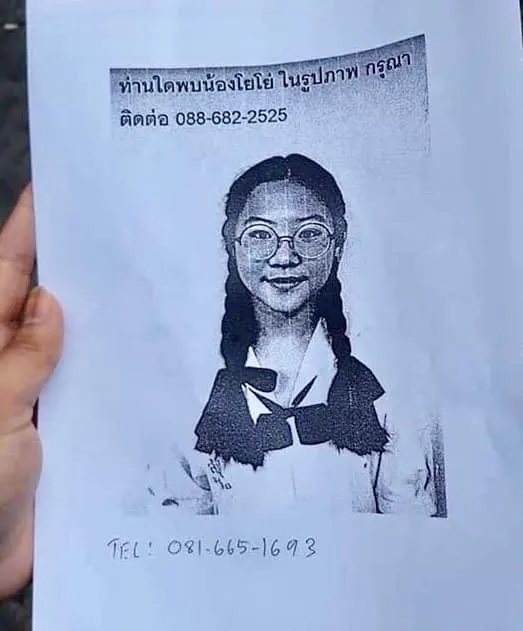 ท่านใดพบน้องโยโย่ ในรูปภาพ กรุณา
ติดต่อ 088-682-2525
TEL: 081-665-1693